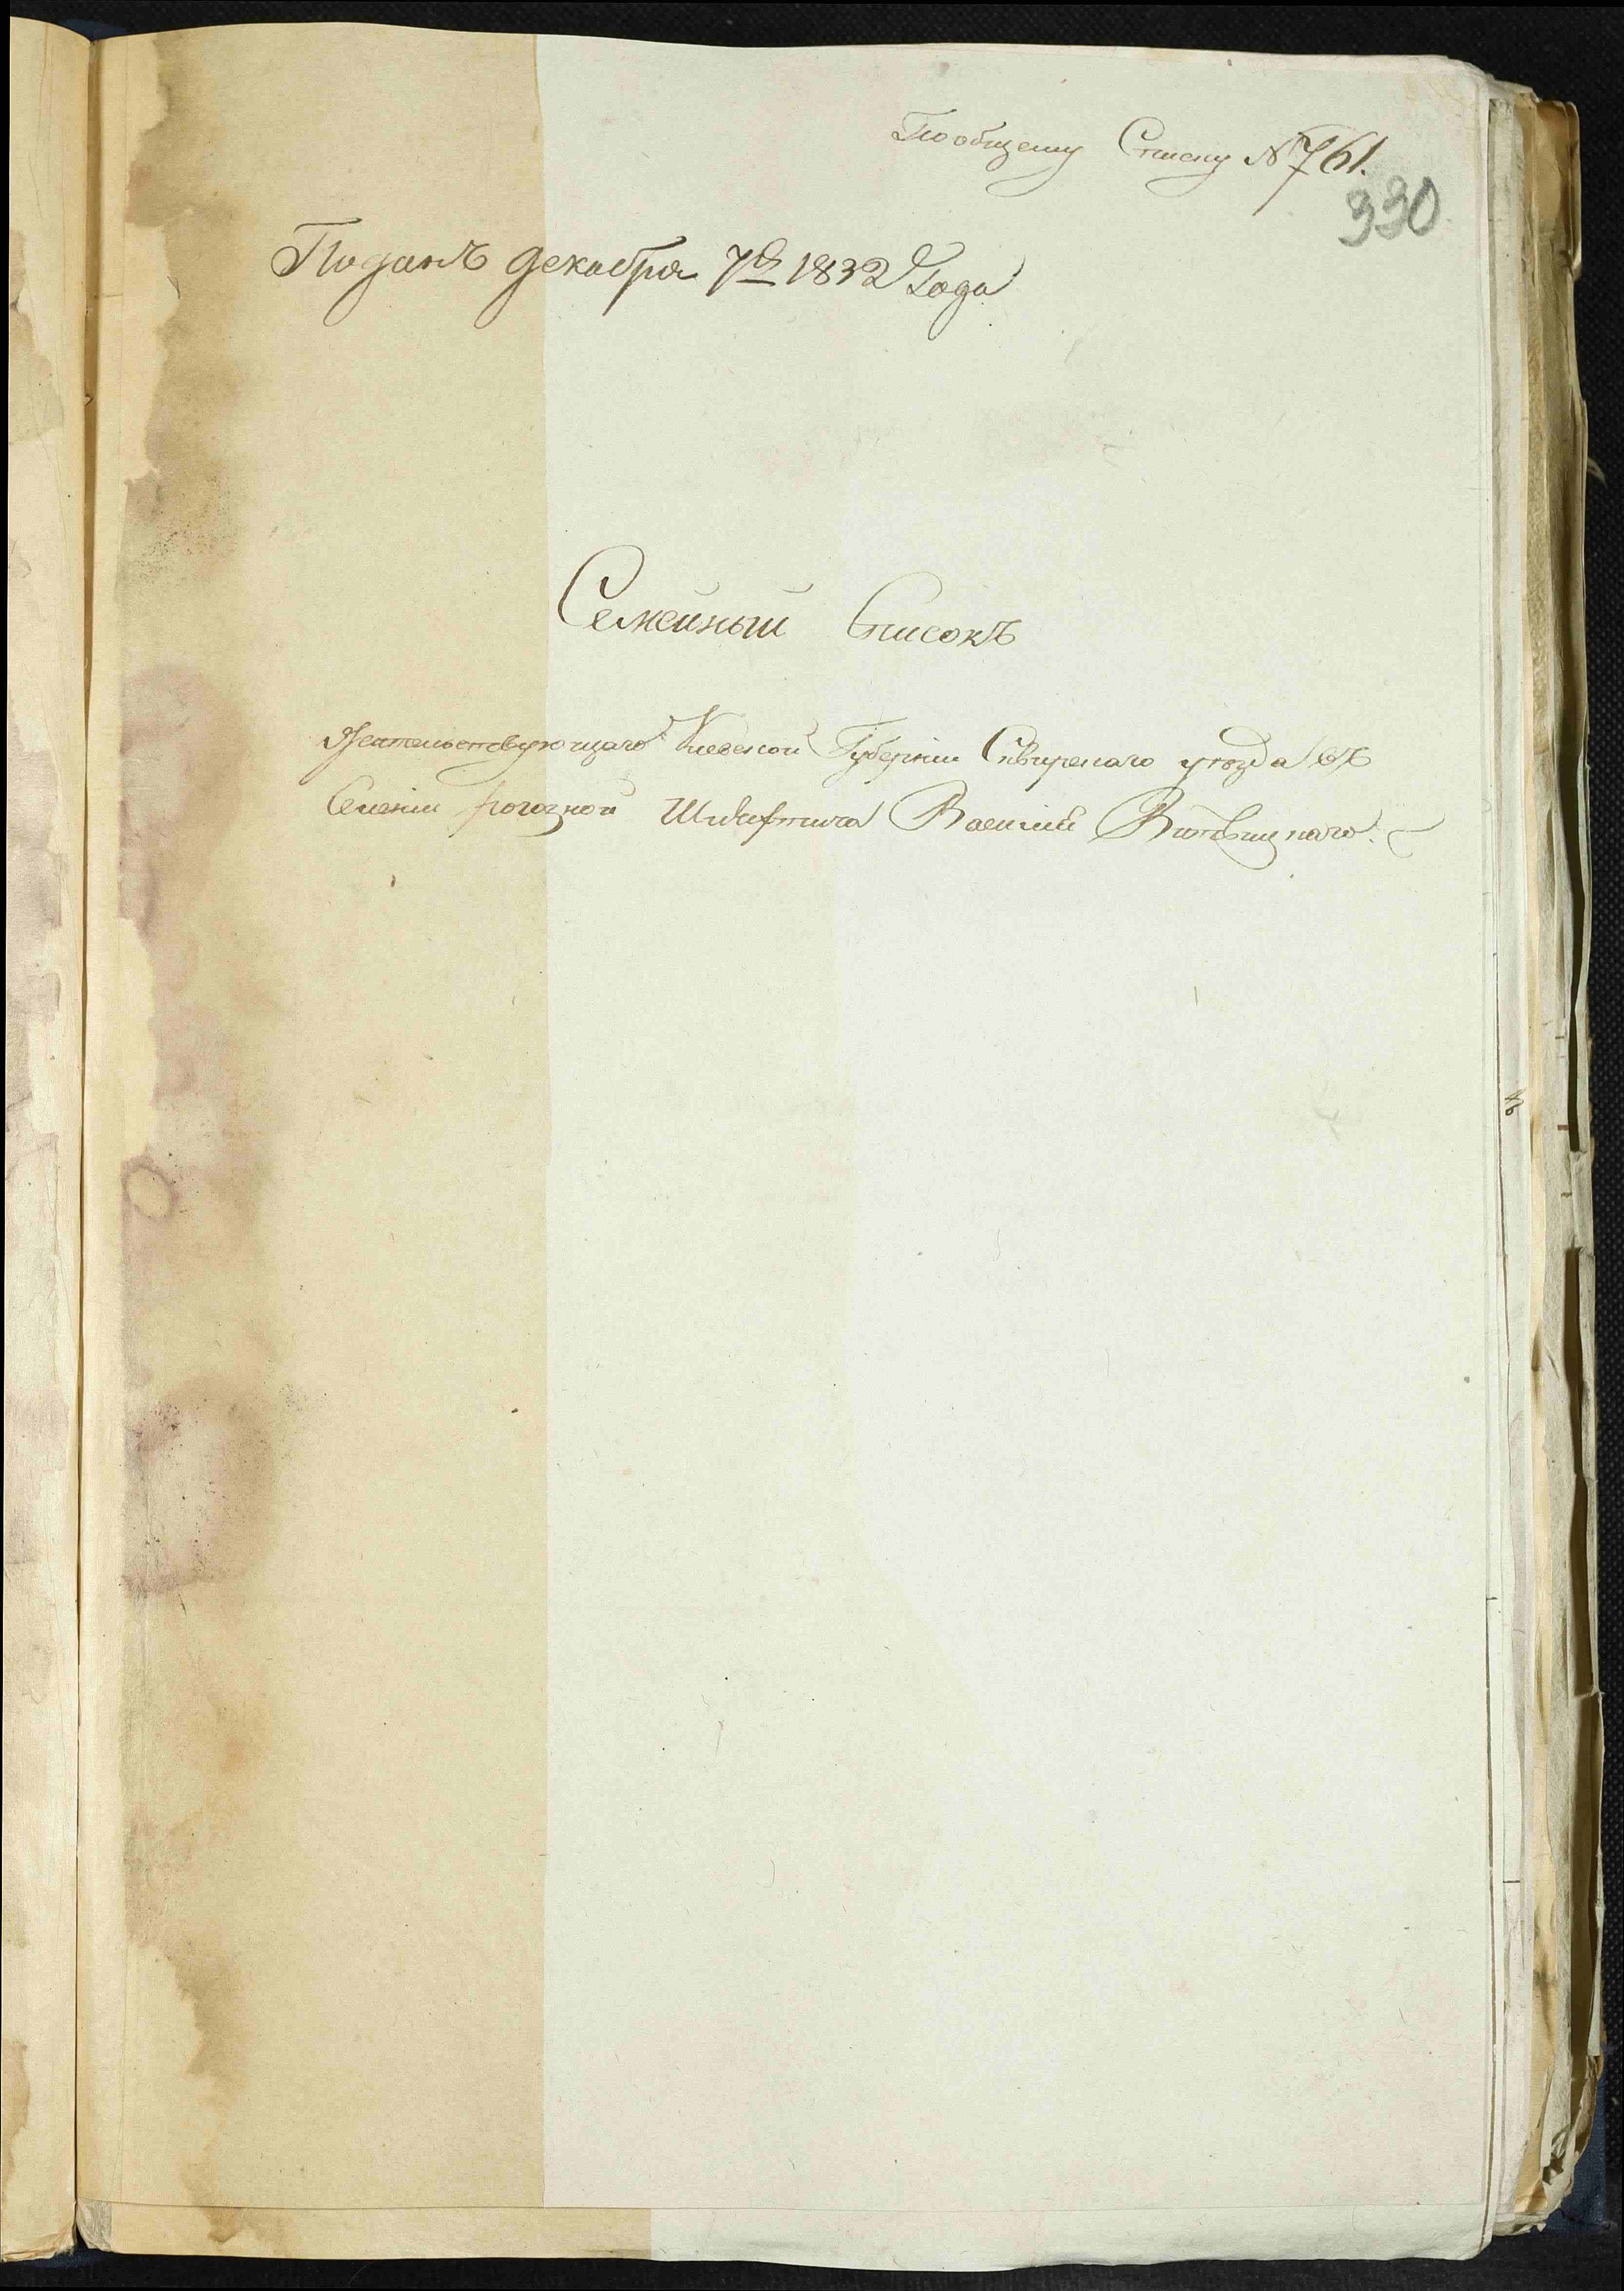 Пообщему Списку №761.
330
Поданъ декабря 7го 1832 Года
Семейный Списокъ
Жительствующаго Киевской Губернии Сквирского уѣзда въ
Селении рогозной Шляхтича Василий Витвицкаго.